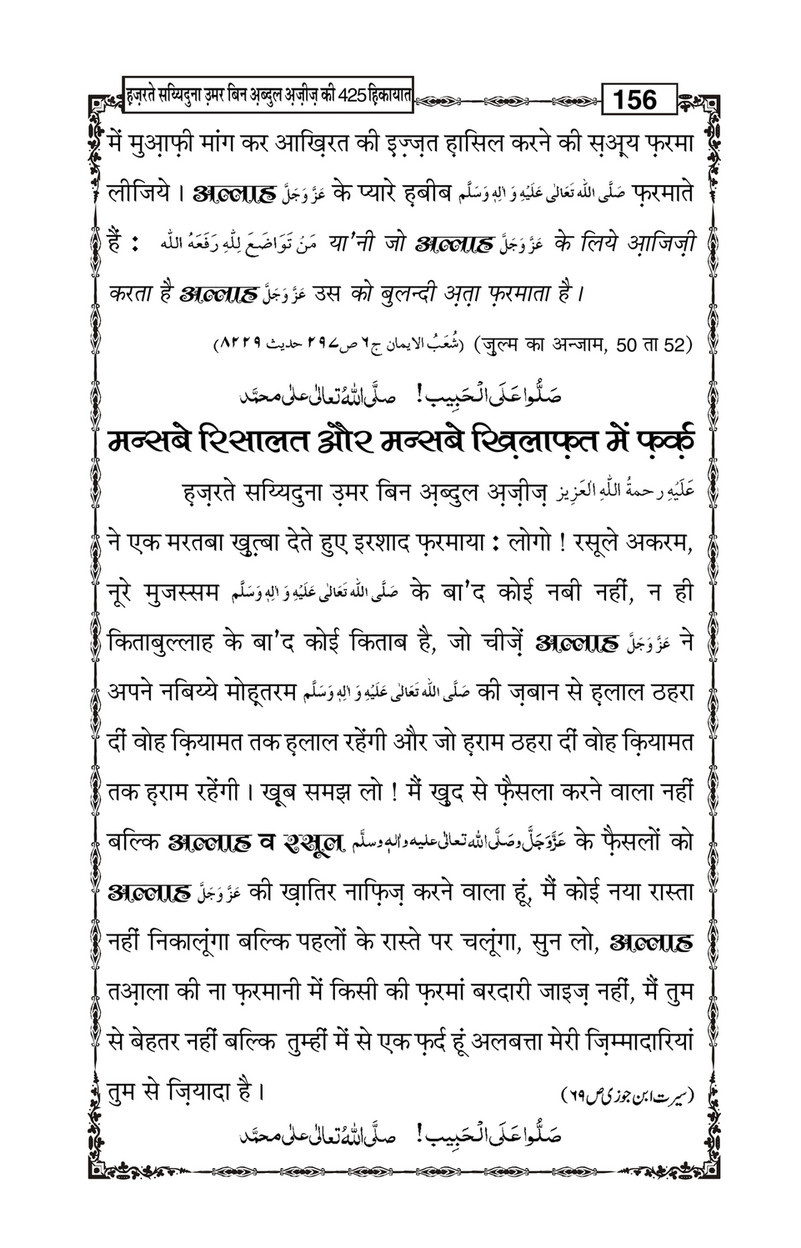 हज़रते सय्यिदुना उ़मर बिन अ़ब्दुल अ़ज़ीज़ की 425 हिकायात
156
में मुआ़फ़ी मांग कर आख़िरत की इ़ज़्ज़त ह़ासिल करने की सअ़्य फ़रमा
लीजिये । अल्लाह عَزَّوَجَلَّ के प्यारे ह़बीब صَلَّى الله تَعَالٰى عَلَيْهِ وَاٰلِهٖ وَسَلَّم फ़रमाते
हैं : مَنْ تَوَاضَعَ لِلّٰهِ رَفَعَهُ الله या'नी जो अल्लाह عَزَّوَجَلَّ के लिये आ़जिज़ी
करता है अल्लाह عَزَّوَجَلَّ उस को बुलन्दी अ़त़ा फ़रमाता है ।
(شُعَبُ الایمان ج٦ ص٢٩٧ حدیث ٨٢٢٩) (ज़ुल्म का अन्जाम, 50 ता 52)
صَلُّوا عَلَى الْحَبِيب! صلَّى اللهُ تعالٰى على محمَّد
मन्सबे रिसालत और मन्सबे ख़िलाफ़त में फ़र्क़
ह़ज़रते सय्यिदुना उ़मर बिन अ़ब्दुल अ़ज़ीज़ عَلَيْهِ رحمةُ اللهِ العَزِيز
ने एक मरतबा ख़ुत़्बा देते हुए इरशाद फ़रमाया : लोगो ! रसूले अकरम,
नूरे मुजस्सम صَلَّى الله تَعَالٰى عَلَيْهِ وَاٰلِهٖ وَسَلَّم के बा'द कोई नबी नहीं, न ही
किताबुल्लाह के बा'द कोई किताब है, जो चीज़ें अल्लाह عَزَّوَجَلَّ ने
अपने नबिय्ये मोह़तरम صَلَّى الله تَعَالٰى عَلَيْهِ وَاٰلِهٖ وَسَلَّم की ज़बान से ह़लाल ठहरा
दीं वोह क़ियामत तक ह़लाल रहेंगी और जो ह़राम ठहरा दीं वोह क़ियामत
तक ह़राम रहेंगी । ख़ूब समझ लो ! मैं ख़ुद से फ़ैसला करने वाला नहीं
बल्कि अल्लाह व रसूल عَزَّوَجَلَّ وصَلَّى الله تعالٰى عليه واٰلهٖ وسلَّم के फ़ैसलों को
अल्लाह عَزَّوَجَلَّ की ख़ात़िर नाफ़िज़ करने वाला हूं, मैं कोई नया रास्ता
नहीं निकालूंगा बल्कि पहलों के रास्ते पर चलूंगा, सुन लो, अल्लाह
तआ़ला की ना फ़रमानी में किसी की फ़रमां बरदारी जाइज़ नहीं, मैं तुम
से बेहतर नहीं बल्कि तुम्हीं में से एक फ़र्द हूं अलबत्ता मेरी ज़िम्मादारियां
तुम से ज़ियादा है । (سیرت ابن جوزی ص ٦٩)
صَلُّوا عَلَى الْحَبِيب! صلَّى اللهُ تعالٰى على محمَّد